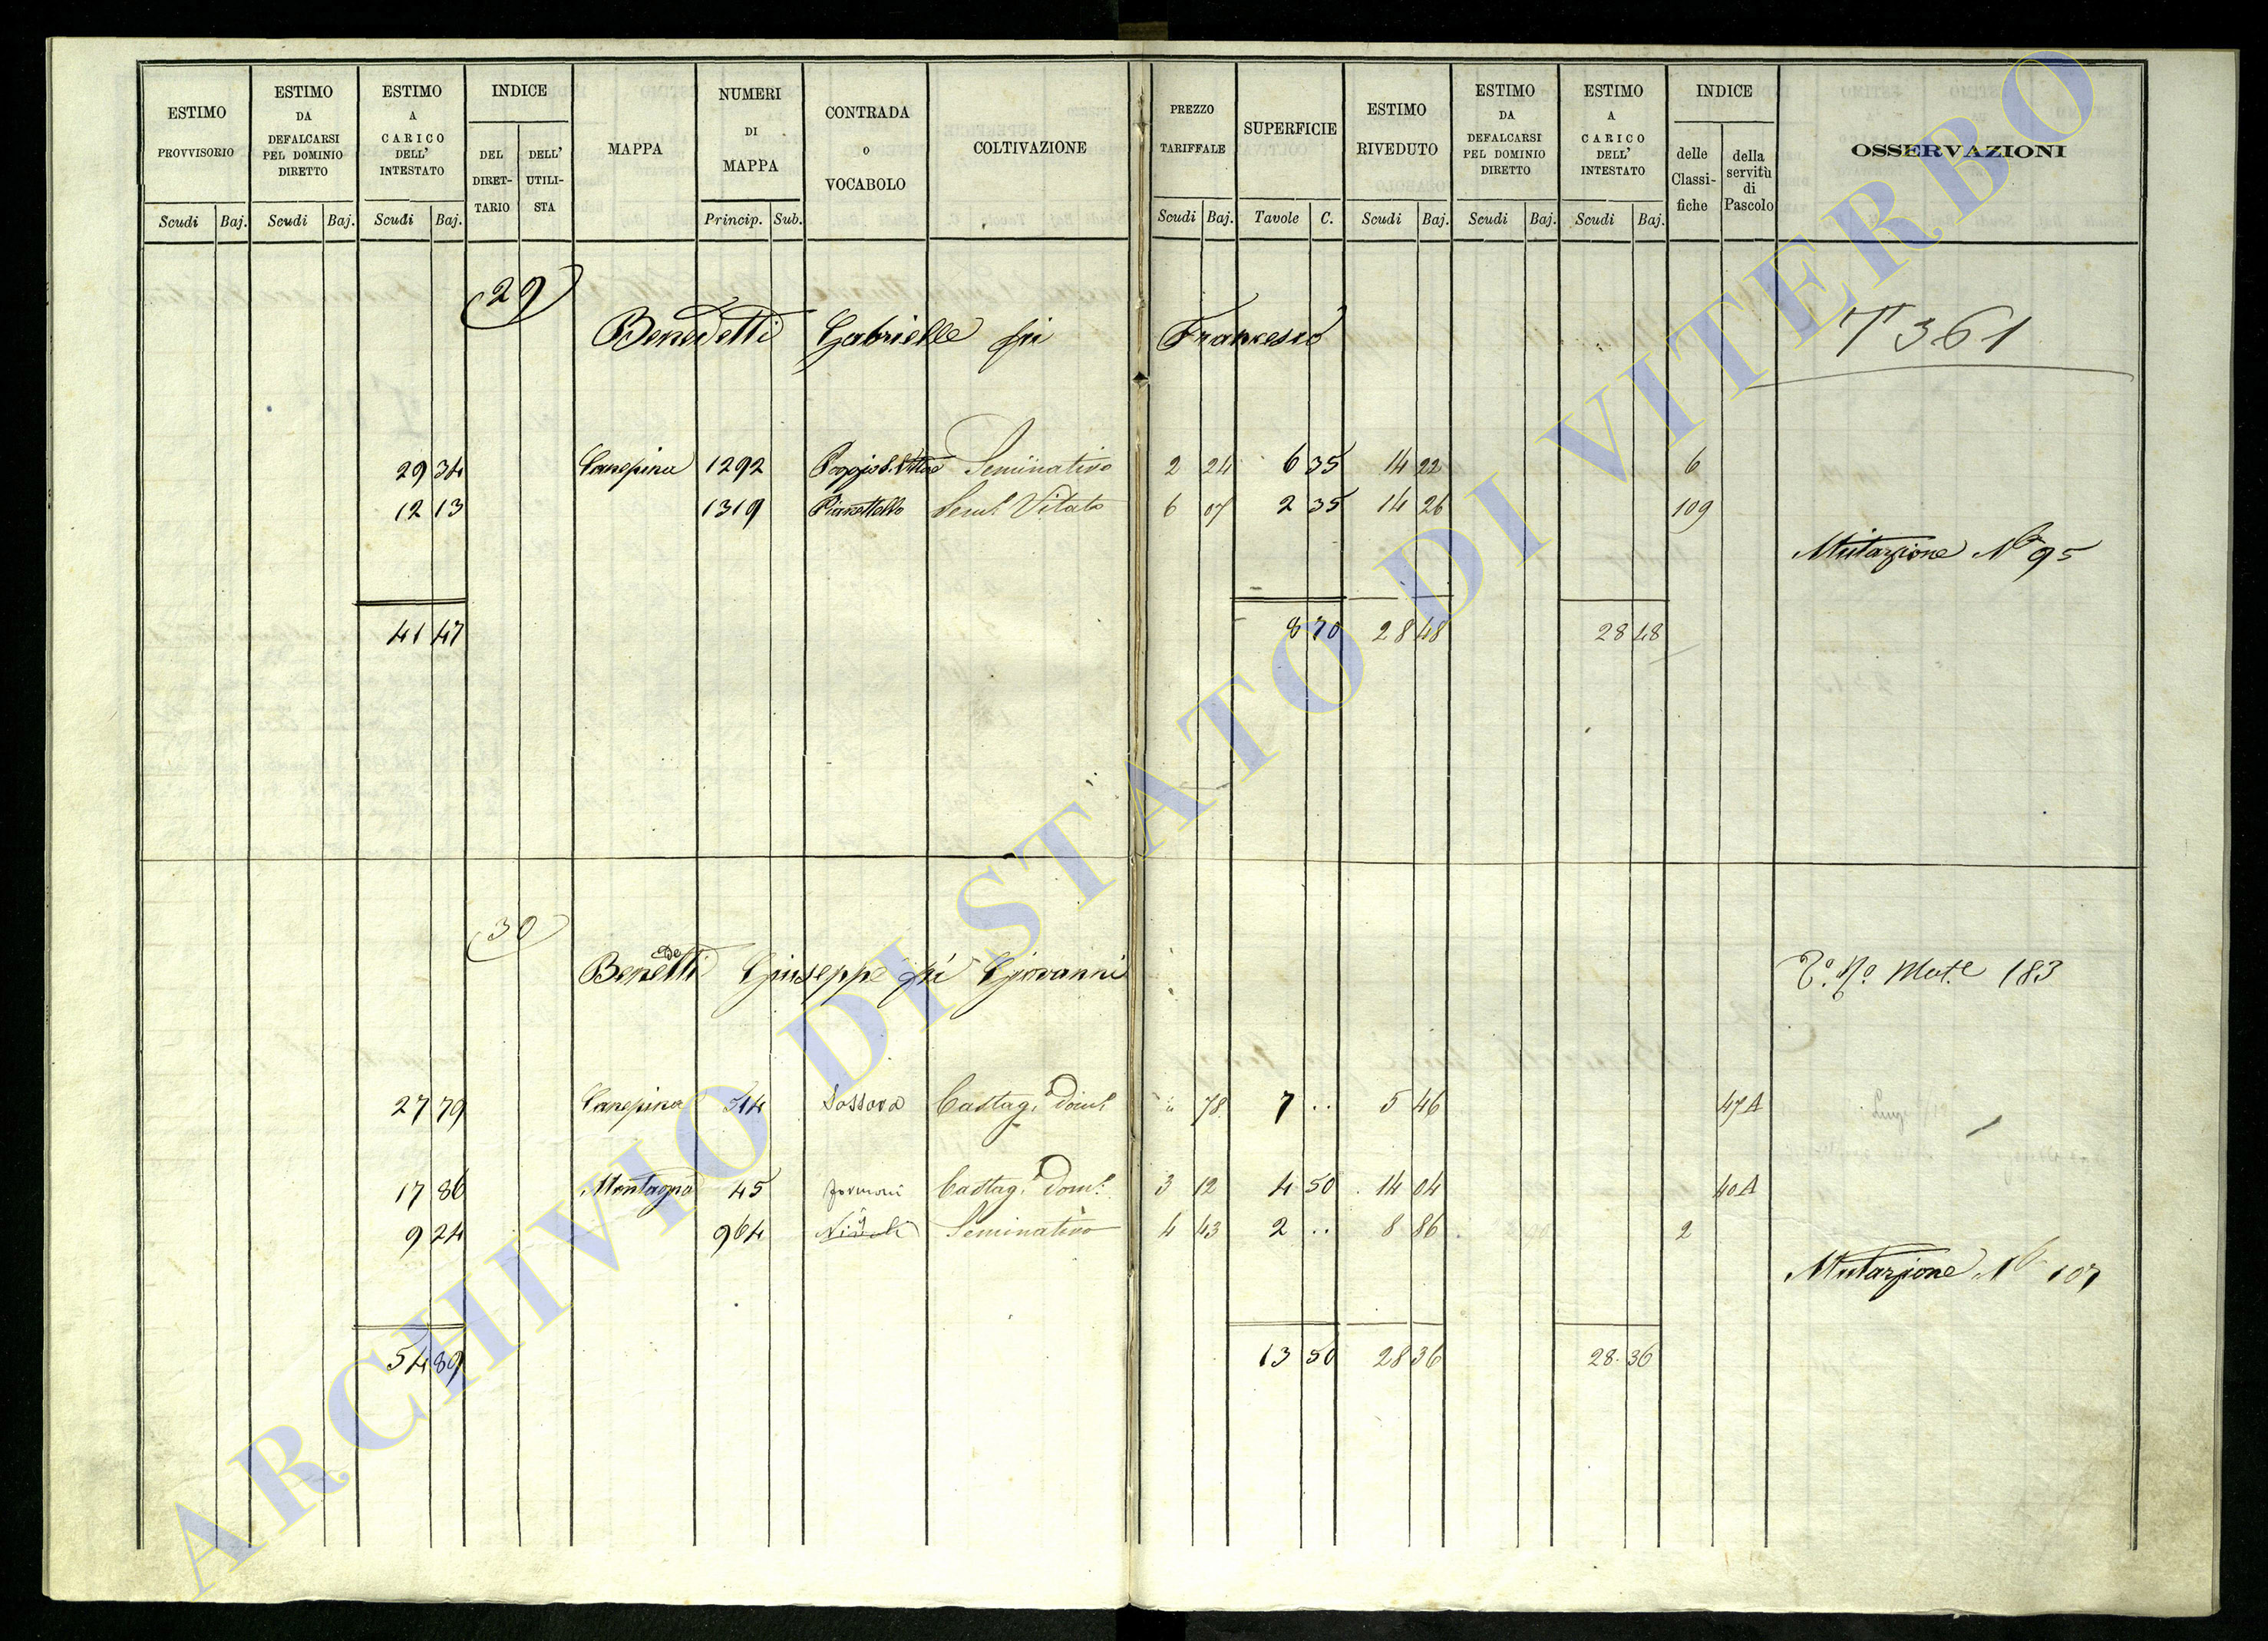 ESTIMO PROVVISORIO
ESTIMO DA DEFALCARSI PEL DOMINIO DIRETTO
ESTIMO A CARICO DELL' INTESTATO
INDICE
DEL DIRET-TARIO
DELL' UTILI-STA
MAPPA
NUMERI DI MAPPA
CONTRADA o VOCABOLO
COLTIVAZIONE
PREZZO TARIFFALE
SUPERFICIE
ESTIMO RIVEDUTO
ESTIMO DA DEFALCARSI PEL DOMINIO DIRETTO
ESTIMO A CARICO DELL' INTESTATO
INDICE
delle Classi-fiche
della servitù di Pascolo
OSSERVAZIONI
Scudi Baj. Scudi Baj. Scudi Baj. Princip. Sub. Scudi Baj. Tavole C. Scudi Baj. Scudi Baj. Scudi Baj.
29
Benedetti Gabrielle fu Francesco
T 361
29 34 Canepina 1292 Poggio S. Vittore Seminativo 2 24 6 35 14 22 6
12 13 1319 Pianettello Sem. Vitato 6 07 2 35 14 26 109
Mutazione N. 95
41 47 8 70 28 48 28 48
30
Benedetti Giuseppe fu Giovanni
Mat.e 183
27 79 Canepina 314 Sossara Castag. Dom. 78 7 .. 5 46 47 A
17 86 Montagna 45 Castag. Dom. 3 12 4 50 14 04 40 A
9 24 964 Seminativo 4 43 2 .. 8 86 2
Mutazione N. 107
54 89 13 50 28 36 28 36
ARCHIVIO DI STATO DI VITERBO